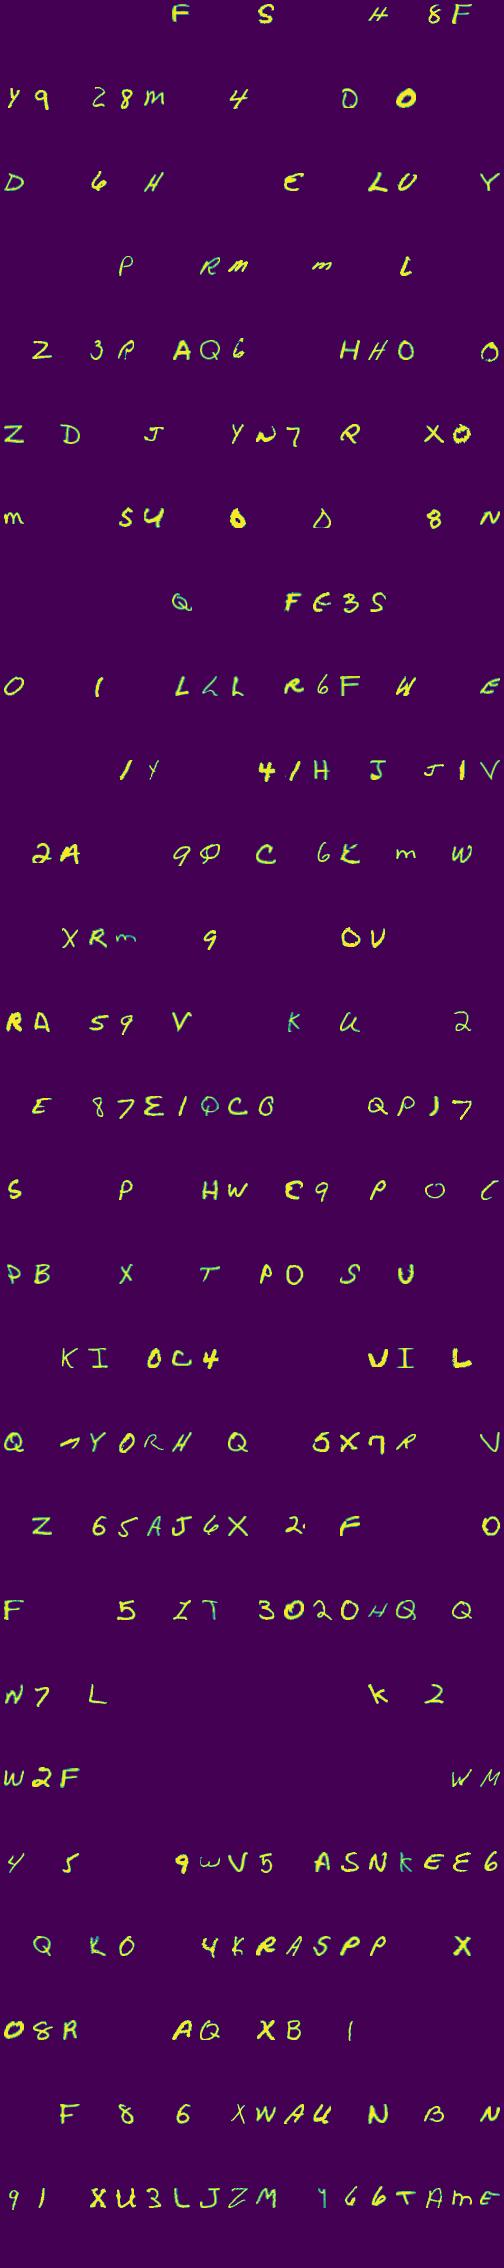 F S H 8F
Y9 28M 4 D 0
D 6 H E LU Y
P RM M L
Z 3R AQ6 HHO O
Z D J YN7 R X0
M 5U 0 D 8 N
Q FE3S
0 1 LLL R6F W E
1Y 41H J J1V
2A 9Q C 6E M W
XRM 9 OV
RA 59 V K U 2
E 87E1QCO QPJ7
S P HW E9 P O C
PB X T PO S U
KI 0C4 VI L
Q 7Y0RH Q 5X7R V
Z 65AJ6X 2 F O
F 5 IT 3020HQ Q
N7 L K 2
W2F WM
4 5 9WV5 ASNKEE6
Q KO 4KRASPP X
08R AQ XB 1
F 8 6 XWAU N B N
91 XU3LJZM 466TAME